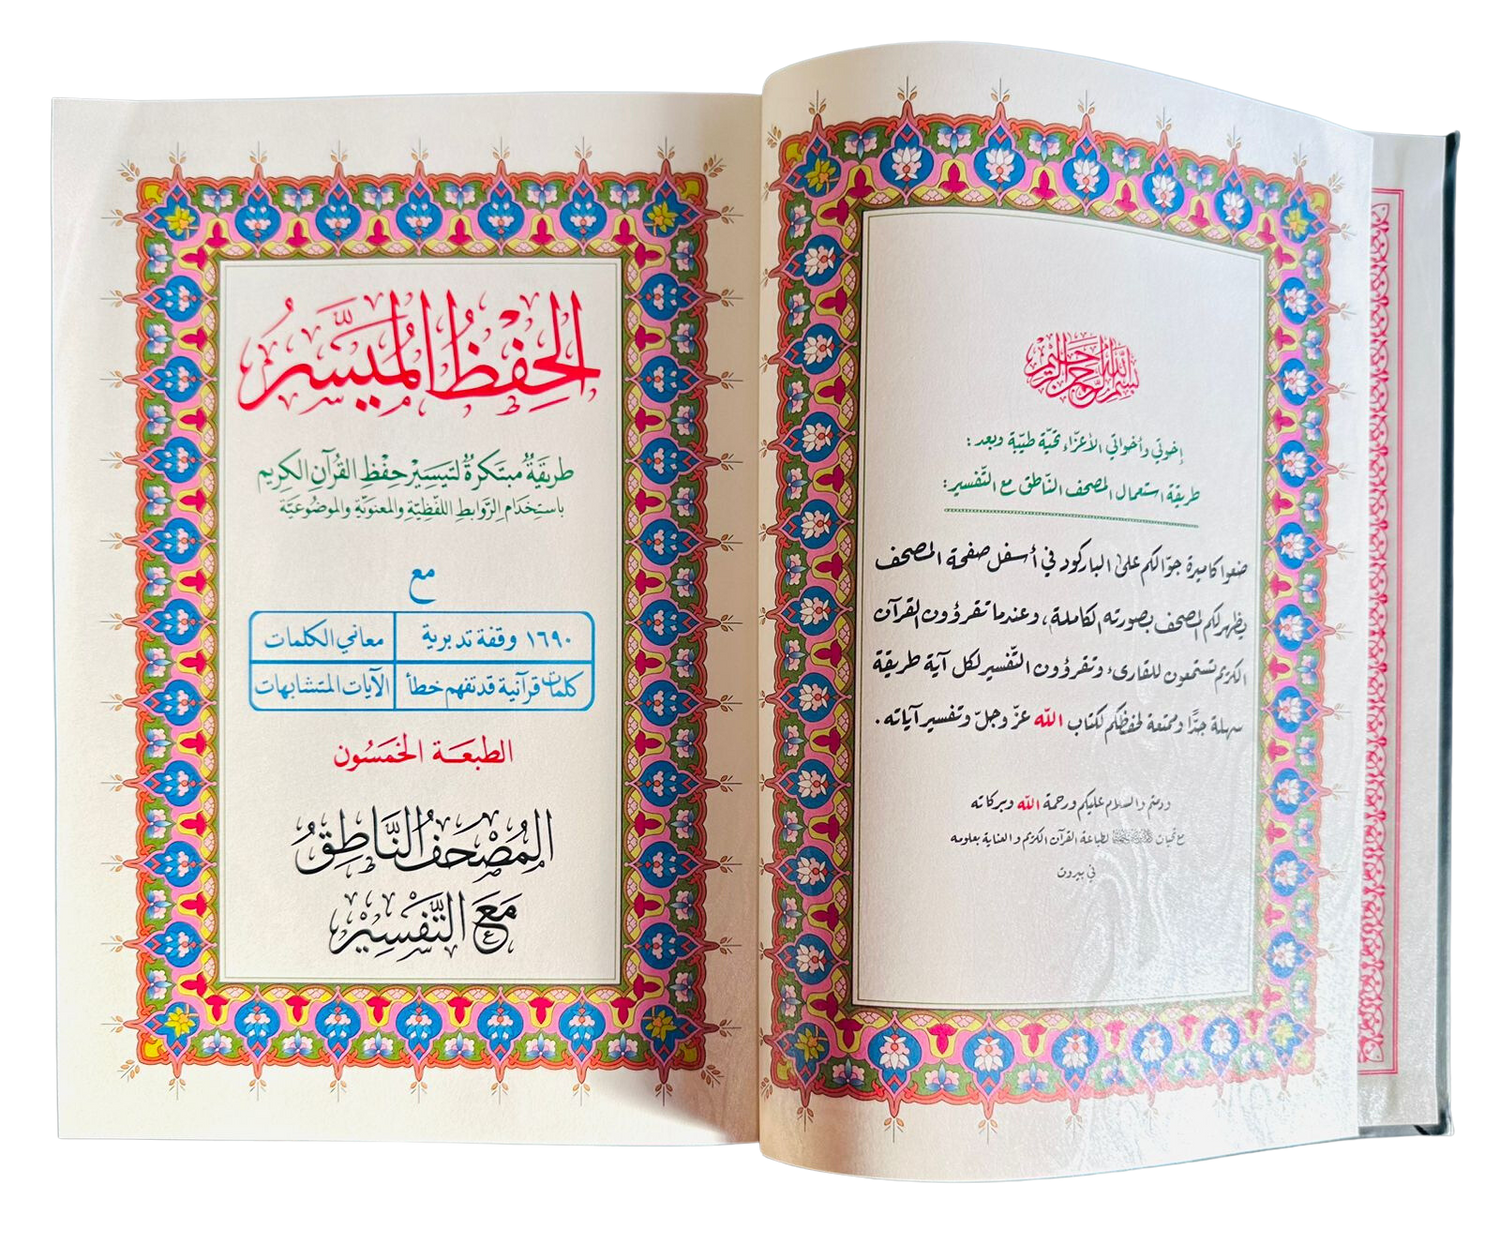 بسم الله الرحمن الرحيم
إخوتي وأخواتي الأعزّاء تحيّة طيّبة وبعد :
طريقة استعمال المصحف النّاطق مع التّفسير :
ضعوا كاميرة جوّالكم على الباركود في أسفل صفحة المصحف
يظهر لكم المصحف بصورته كاملة، وعندما تقرؤون القرآن
الكريم تستمعون للقارىء وتقرؤون التّفسير لكل آية طريقة
سهلة جدًّا وممتعة لحفظكم لكتاب الله عزّ وجلّ وتفسير آياته .
ودمتم والسلام عليكم ورحمة الله وبركاته
لطباعة القرآن الكريم والعناية بعلومه
في بيروت
الحِفْظُ المُيَسَّرُ
طَريقَةٌ مُبتَكرةٌ لتيَسيْر حِفْظِ القُرآنِ الكريم
باستِخدَام الرَّوابطِ اللَّفظيَّةِ والمعنويَّةِ والموضُوعيَّة
مع
١٦٩٠ وقفة تدبرية
معاني الكلمات
كلمات قرآنية قد تفهم خطأ
الآيات المتشابهات
الطبعَـة الخمسُون
المُصْحَفُ النَّاطِقُ
مَعَ التَّفْسِيْرِ